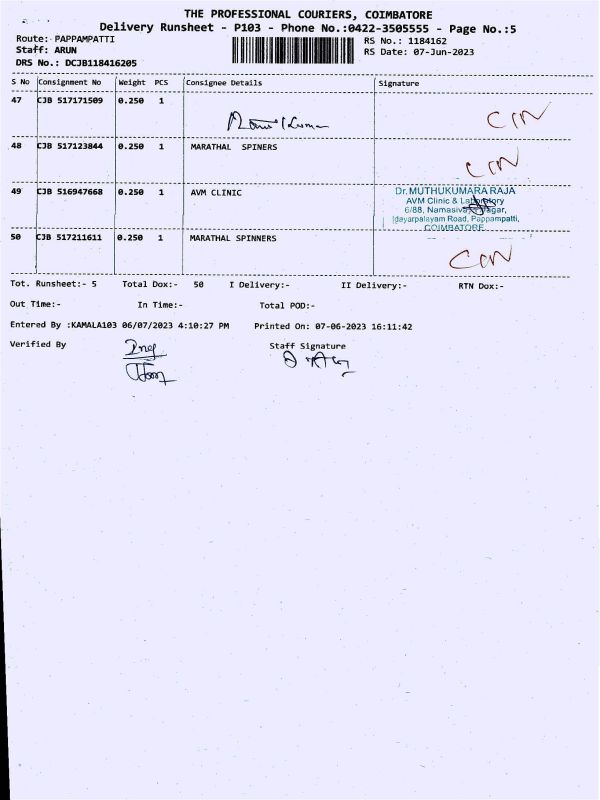 THE PROFESSIONAL COURIERS, COIMBATORE
Delivery Runsheet - P103 - Phone No.:0422-3505555 - Page No.:5
Route: PAPPAMPATTI
Staff: ARUN
DRS No.: DCJB118416205
RS No.: 1184162
RS Date: 07-Jun-2023
S No Consignment No Weight PCS Consignee Details Signature
47 CJB 517171509 0.250 1
CIN
48 CJB 517123844 0.250 1 MARATHAL SPINERS
CIN
49 CJB 516947668 0.250 1 AVM CLINIC
Dr. MUTHUKUMARA RAJA
AVM Clinic & Laboratory
6/88, Namasiva Nagar,
Idayarpalayam Road, Pappampatti,
COIMBATORE
50 CJB 517211611 0.250 1 MARATHAL SPINNERS
CIN
Tot. Runsheet:- 5 Total Dox:- 50 I Delivery:- II Delivery:- RTN Dox:-
Out Time:- In Time:- Total POD:-
Entered By :KAMALA103 06/07/2023 4:10:27 PM Printed On: 07-06-2023 16:11:42
Verified By Staff Signature